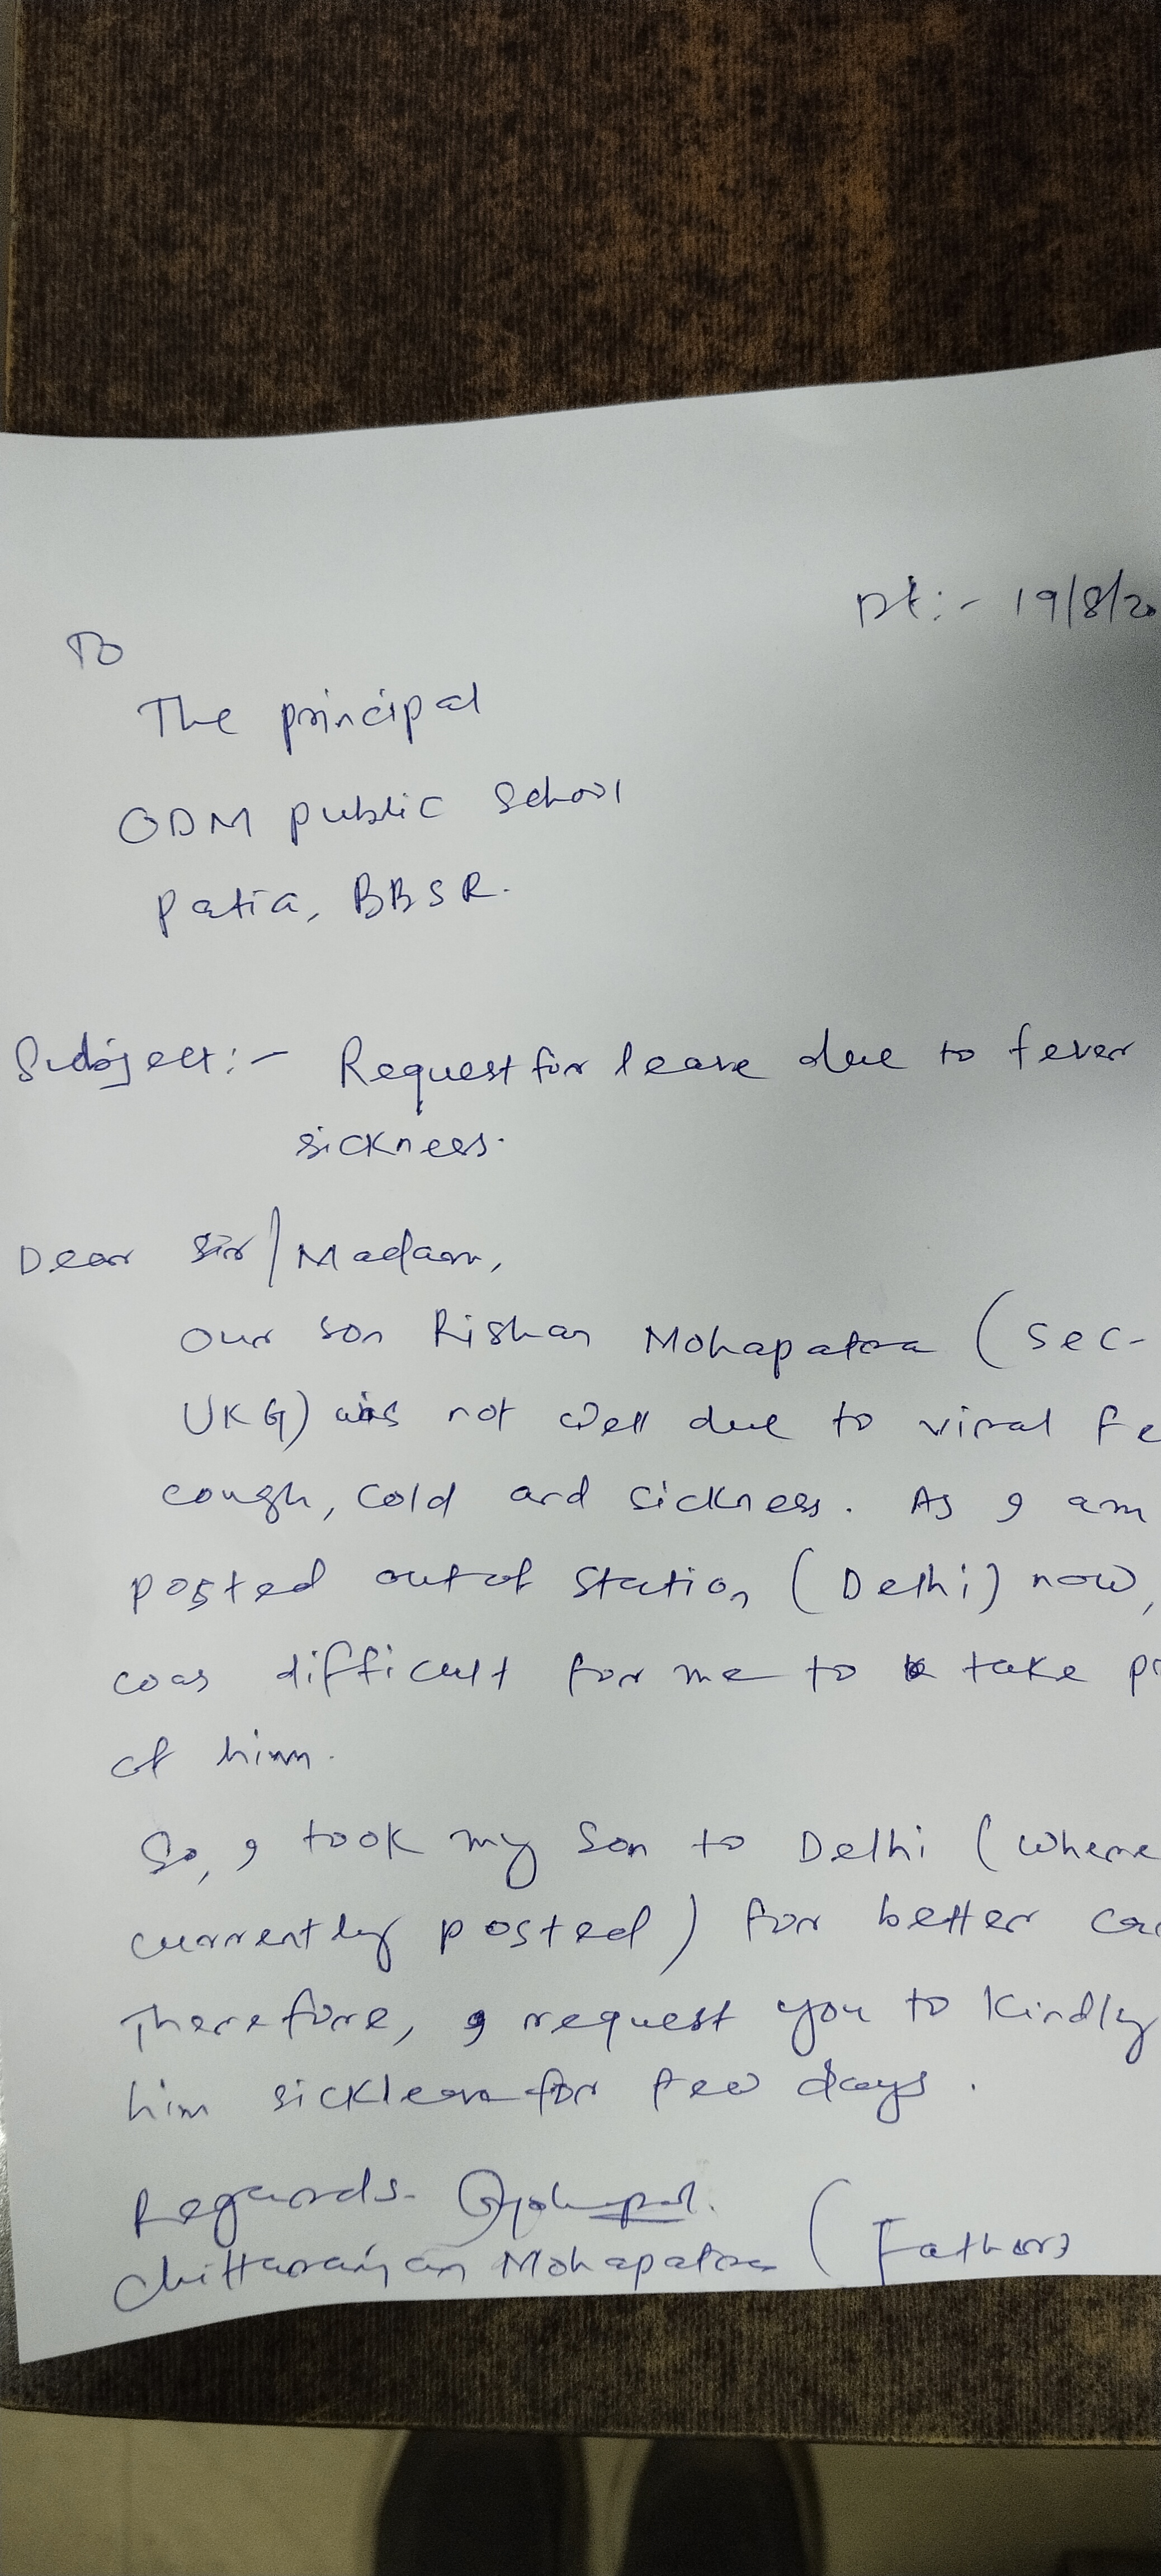 Dt:- 19/8/20
To
The principal
ODM public School
Patia, BBSR.
Subject:- Request for leave due to fever
sickness.
Dear Sir/Madam,
Our son Rishan Mohapatra (Sec-
UKG) was not well due to viral fe
cough, cold and sickness. As I am
posted out of Station (Delhi) now,
was difficult for me to take pr
of him.
So, I took my son to Delhi (where
currently posted) for better ca
Therefore, I request you to kindly
him sick leave for few days.
Regards.
Chittaranjan Mohapatra (Father)